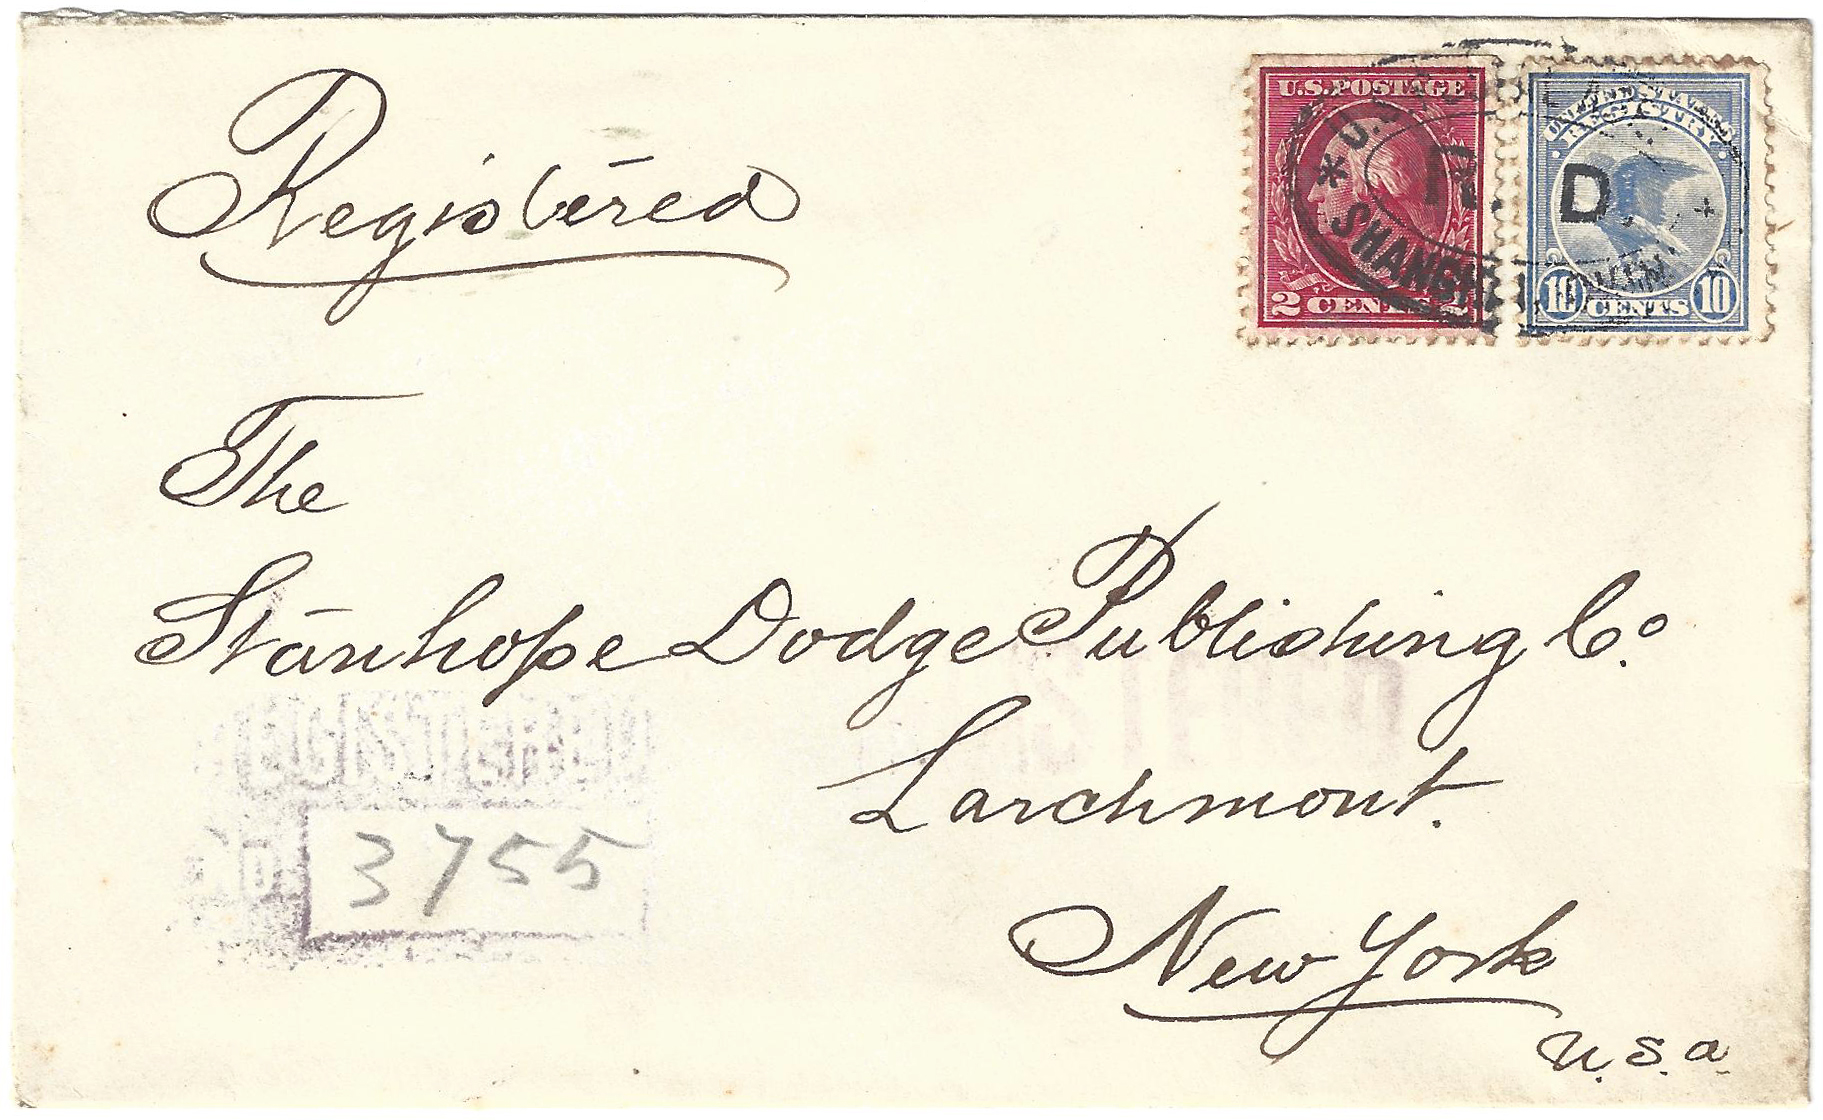 Registered
U.S. POSTAGE
2 CENTS 2
UNITED STATES
REGISTRY
10 CENTS 10
* U.S. POSTAL
R. D.
SHANGHAI, CHINA
The
Stanhope Dodge Publishing Co.
Larchmont.
New York
U.S.a.
REGISTERED
No. 3755